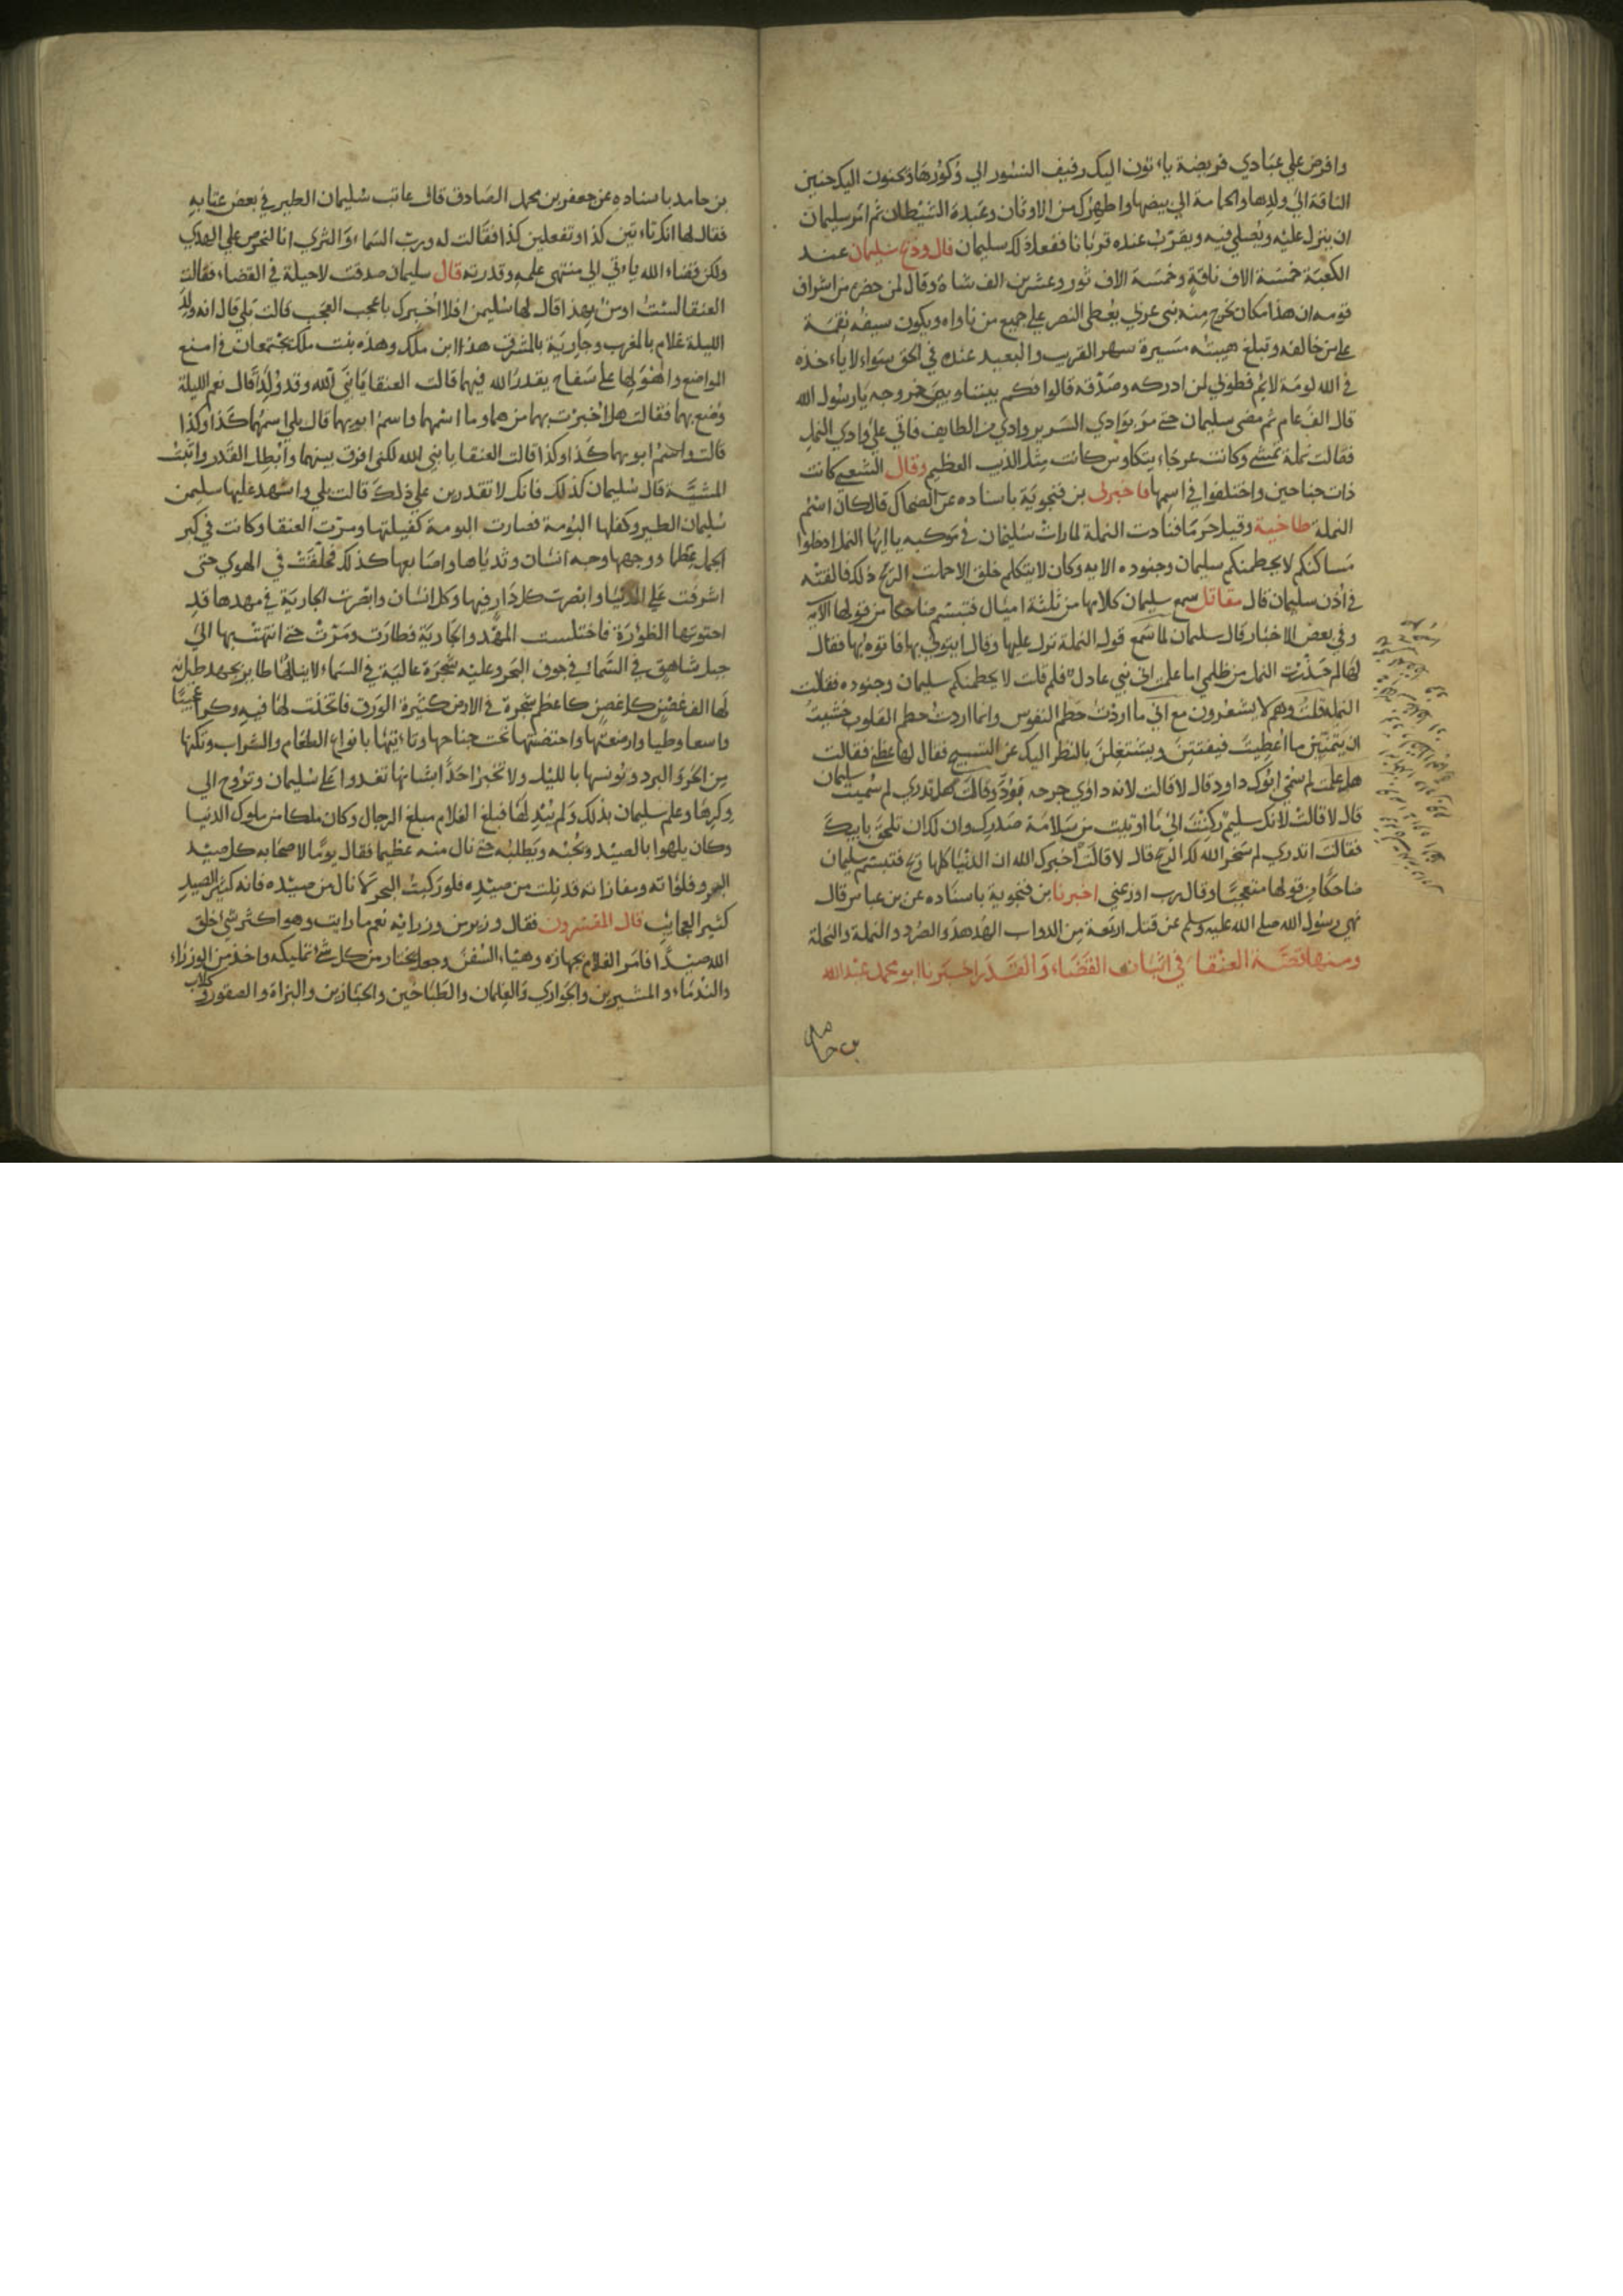 وافرض علي عبادي فريضة ياءتون اليك رفيف النسور الي وكورها ويحنون اليك حنين
الناقة الي ولدها والحمامة الي بيضها واطهرك من الاوثان وعبدة الشيطان ثم امر سليمان
ان ينزل عليه ويصلي فيه ويقرب عنده قربانا ففعل ذلك سليمان قال وذبح سليمان عند
الكعبة خمسة الاف ناقة وخمسة الاف ثور وعشرين الف شاة وقال لمن حضره من اشراف
قومه ان هذا مكان يخرج منه نبي عربي يعطى النصر علي جميع من ناواه ويكون سيفه نقمة
علي من خالفه وتبلغ هيبته مسيرة شهر القريب والبعيد عنده في الحق سواء لا ياءخذه
في الله لومة لايم فطوبي لمن ادركه وصدقه قالوا فكم بيننا وبين خروجه يا رسول الله
قال الف عام ثم مضى سليمان حتى مر بوادي السرير وادي من الطايف فاتي علي وادي النمل
فقالت نملة تمشي وكانت عرجاء تتكاوس كانت مثل الذيب العظيم وقال الشعبي كانت
ذات جناحين واختلفوا في اسمها فاخبرني بن فنجوية باسناده عن الضحاك قال كان اسم
النملة طاخية وقيل حرما فنادت النملة لما رات سليمان في موكبه يا ايها النمل ادخلوا
مساكنكم لا يحطمنكم سليمان وجنوده الايه وكان لا يتكلم خلق الا حملت الريح ذلك فالقته
في اذن سليمان قال مقاتل سمع سليمان كلامها من ثلثة اميال فتبسم ضاحكا من قولها الآية
وفي بعض الاخبار قال سليمان لما سمع قول النملة نزل عليها وقال ايتوني بها فاتوه بها فقال
لها لم حذرت النمل من ظلمي اما علمت اني نبي عادل فلم قلت لا يحطمنكم سليمان وجنوده فقالت
النملة قلت وهم لا يشعرون مع اني ما اردت حطم النفوس وانما اردت حطم القلوب خشيت
ان يتمنين ما اعطيت فيفتتن ويشتغلن بالنظر اليك عن التسبيح فقال لها عظي فقالت
هل علمت لم سمي ابوك داود قال لا قالت لانه داوي جرحه فودَّ وقالت هل تدري لم سميت سليمان
قال لا قالت لانك سليم ركنت الي ما اوتيت من سلامة صدرك وان لك ان تلحق بابيك
فقالت اتدري لم سخر الله لك الريح قال لا قالت اخبرك الله ان الدنيا كلها ريح فتبسم سليمان
ضاحكا من قولها متعجبا وقال رب اوزعني اخبرنا بن فنجوية باسناده عن بن عباس قال
نهي رسول الله صلي الله عليه وسلم عن قتل اربعة من الدواب الهدهد والصرد والنملة والنحلة
ومنها قصة العنقا في اثبات القضاء والقدر اخبرنا ابو محمد عبد الله
بن حامد
بن حامد باسناده عن جعفر بن محمد الصادق قال عاتب سليمان الطير في بعض عتابه
فقال لها انك تاءتين كذا وتفعلين كذا فقالت له ورب السماء والثري انا لنحرص علي الهدي
ولكن قضاء الله ياءتي الي منتهى علمه وقدرته قال سليمان صدقت لا حيلة في القضاء فقالت
العنقا لست اومن بهذا قال لها سليمن افلا اخبرك باعجب العجب قالت بلي قال انه ولد
الليلة غلام بالمغرب وجارية بالمشرق هذا ابن ملك وهذه بنت ملك يجتمعان في امنع
المواضع واهولها علي سفاح بقدر الله فيهما قالت العنقا يا نبي الله وقد ولدا قال نعم الليلة
وضع بهما فقالت هل اخبرت بهما من هما وما اسمهما واسم ابويهما قال بلي اسمهما كذا وكذا
قالت واسم ابويهما كذا وكذا قالت العنقا يا نبي الله لكني افرق بينهما وابطل القدر واثبت
المشيّة قال سليمان كذلك فانك لا تقدرين علي ذلك قالت بلي واشهد عليها سليمن
سليمان الطير وكفلها البومة فصارت البومة كفيلتها ومرت العنقا وكانت في كبر
الجمل عظما ووجهها وجه انسان وثدياها واصابعها كذلك فحلقت في الهوي حتى
اشرفت علي الدنيا وابصرت كل دار فيها وكل انسان وابصرت الجارية في مهدها قد
احتوتها الظوارة فاختلست المهد والجارية فطارت ومرت حتى انتهت بها الي
جبل شاهق في السماء في جوف البحر وعليه شجرة عالية في السماء لا ينالها طاير بجهد طيرانه
لها الف غصن كل غصن كاعظم شجرة في الارض كثيرة الورق فاتخذت لها فيه وكرا عجيبا
واسعا وطيا وارضعتها واحتضنتها تحت جناحها وتاءتيها بانواع الطعام والشراب وتكنها
من الحر والبرد وتونسها بالليل ولا تخبر احدا بشانها تغدوا علي سليمان وتروح الي
وكرها وعلم سليمان بذلك ولم يبد لها فبلغ الغلام مبلغ الرجال وكان ملكا من ملوك الدنيا
وكان يلهوا بالصيد ويحبه ويطلبه حتى نال منه عظيما فقال يوما لاصحابه كل صيد
البر وفلواته ومفازاته قد نلت من صيده فلو ركبت البحر لانال من صيده فانه كثير الصيد
كثير العجايب قال المفسرون فقال وزير من وزرايه نعم ما رايت وهو اكثر شي خلق
الله صيدا فامر الغلام بجهازه وهيئاء السفن وجعل يختار من كل شي تمليكه واخذ من الوزراء
والندماء والمشيرين والجواري والغلمان والطباخين والخبازين والبزاة والصقور وكلاب